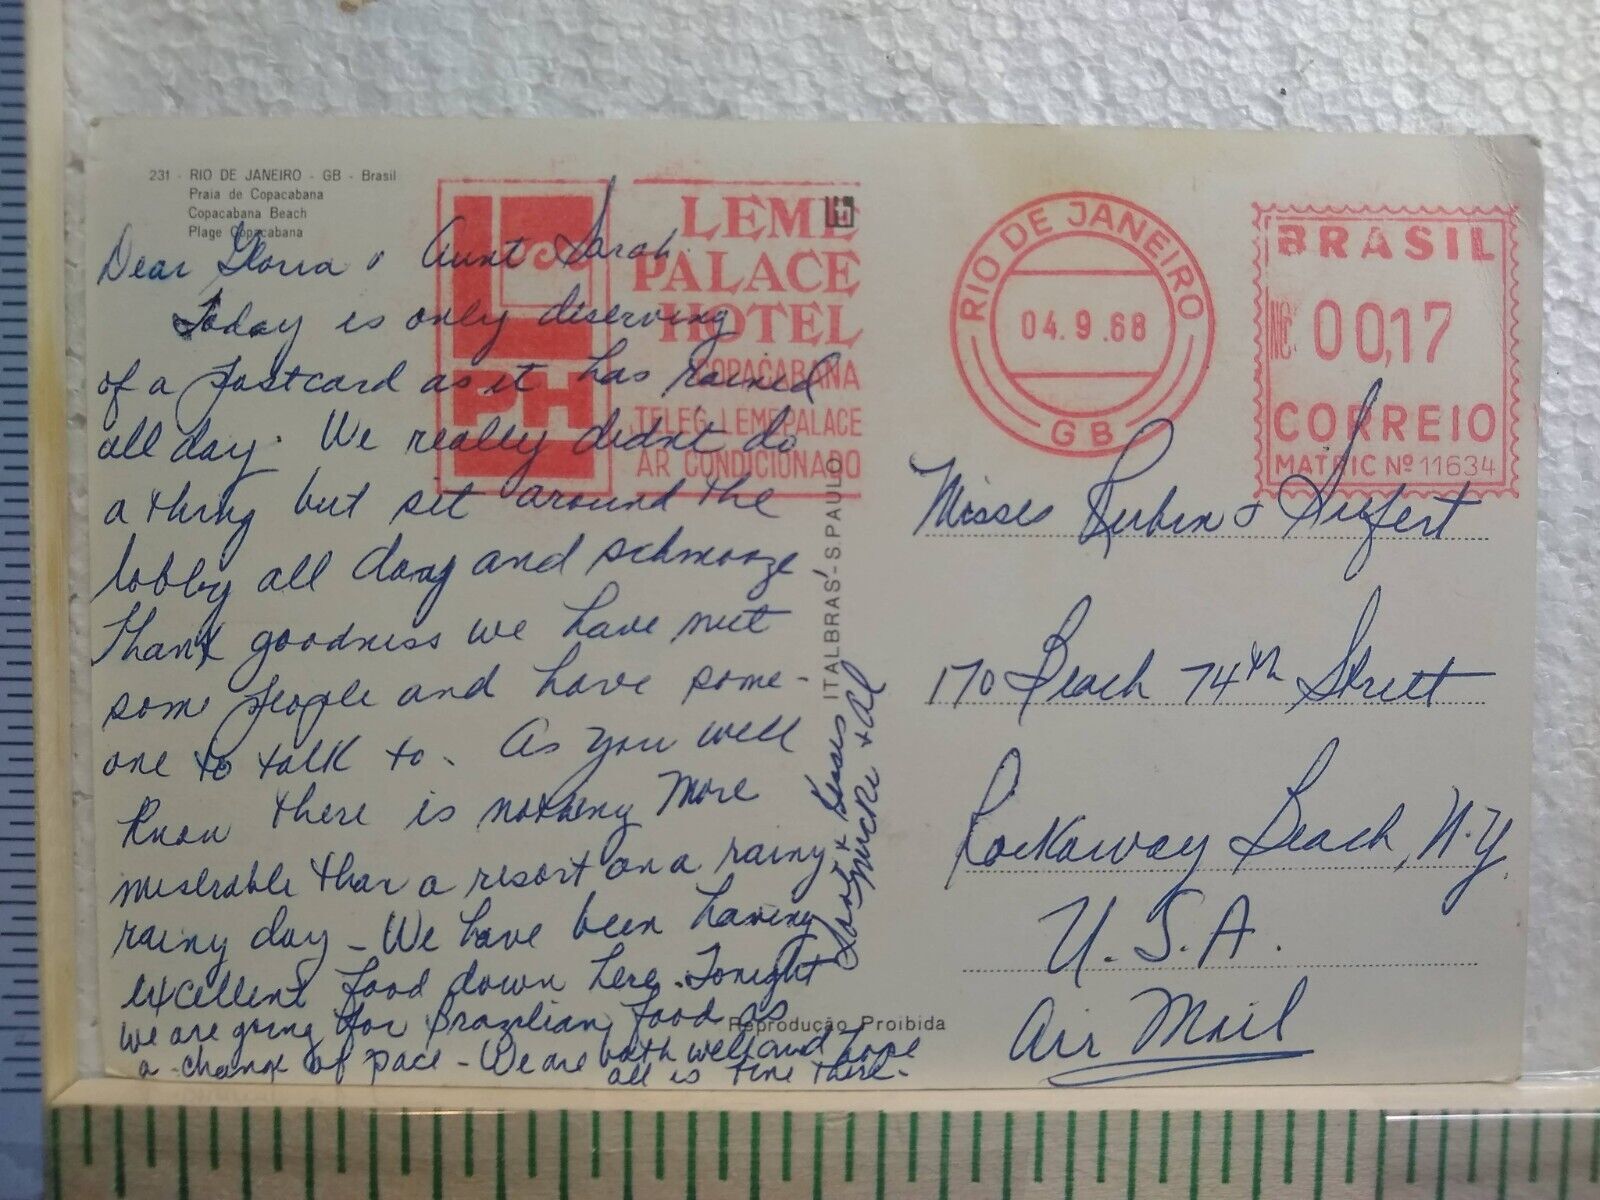 231 - RIO DE JANEIRO - GB - Brasil
Praia de Copacabana
Copacabana Beach
Plage Copacabana
LPH
LEME
PALACE
HOTEL
COPACABANA
TELEG. LEMEPALACE
AR CONDICIONADO
RIO DE JANEIRO
04.9.68
GB
BRASIL
NCr. 00,17
CORREIO
MATRIC Nº 11634
Dear Gloria & Aunt Sarah
Today is only diserving
of a postcard as it has rained
all day. We really didnt do
a thing but sit around the
lobby all day and schmooze
Thank goodness we have met
some people and have some-
one to talk to. As you well
know there is nothing more
miserable than a resort on a rainy
rainy day - We have been having
excellent food down here. Tonight
we are going for Brazilian food as
a change of pace - We are both well and hope
all is fine there.
Love & Kisses
Muckie & Al
ITALBRAS - S. PAULO
Reprodução Proibida
Misses Rubin & Siefert
170 Beach 74th Street
Rockaway Beach, N.Y.
U.S.A.
Air Mail